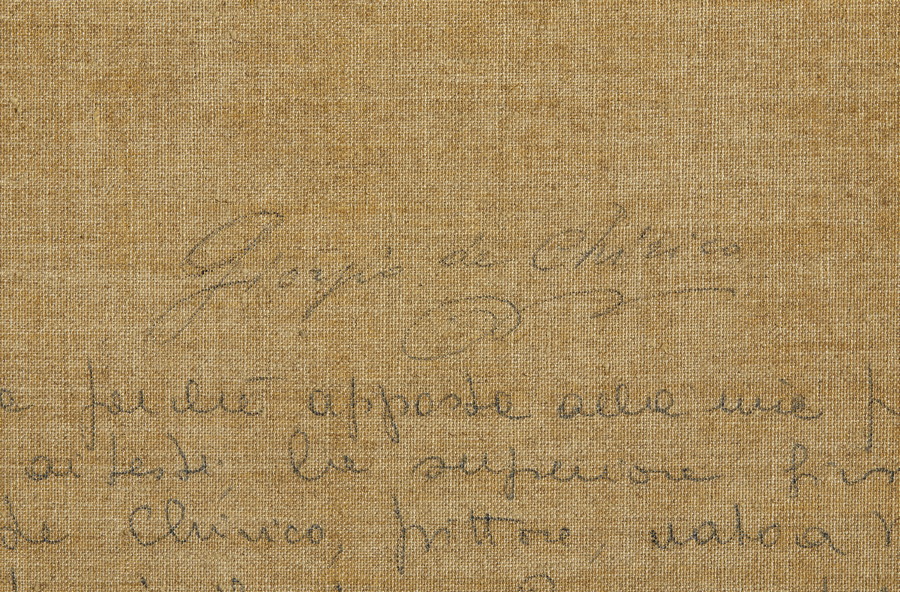 Giorgio de Chirico
e perchè apposta alla mia p
ai testi la superiore fir
de Chirico, pittore, nato a V